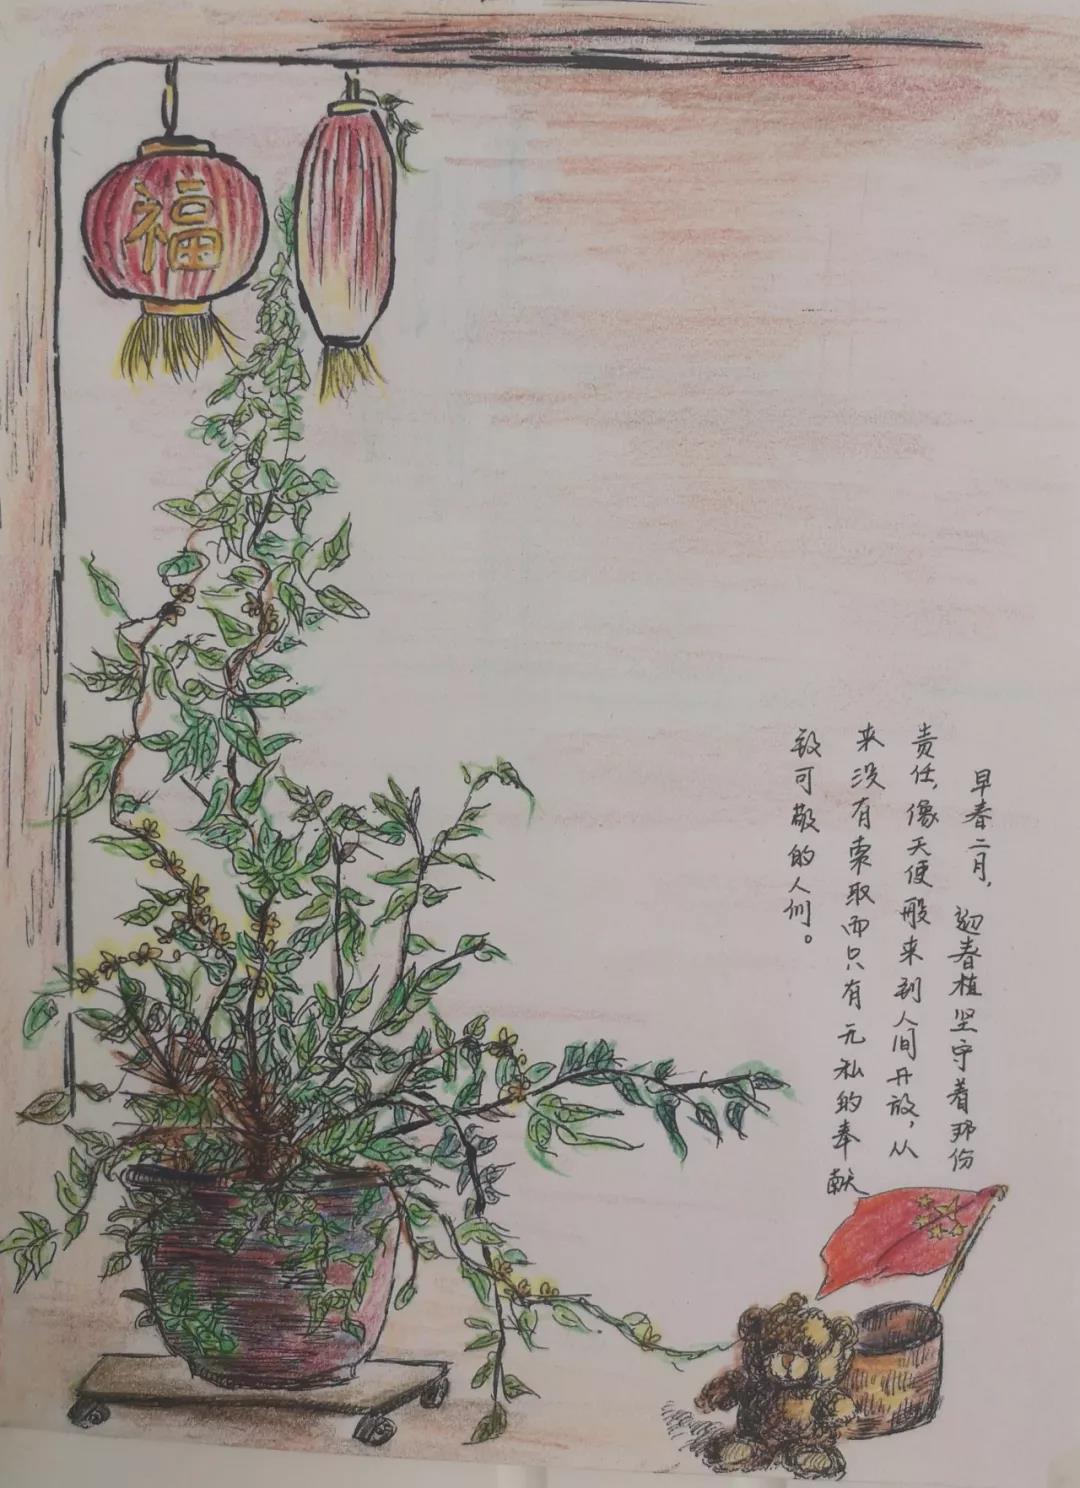 福
早春二月,迎春植坚守着那份
责任,像天使般来到人间开放,从
来没有索取而只有无私的奉献
致可敬的人们。